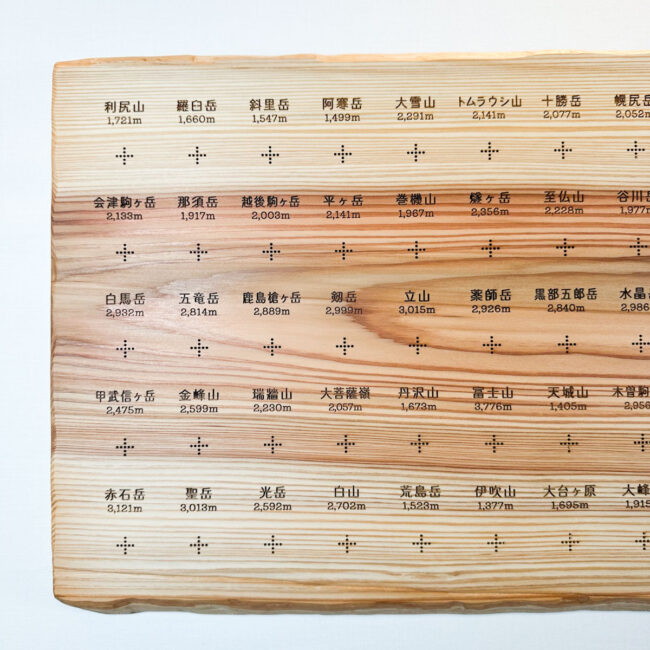 利尻山 羅臼岳 斜里岳 阿寒岳 大雪山 トムラウシ山 十勝岳 幌尻岳
1,721m 1,660m 1,547m 1,499m 2,291m 2,141m 2,077m 2,052m
会津駒ヶ岳 那須岳 越後駒ヶ岳 平ヶ岳 巻機山 燧ヶ岳 至仏山 谷川岳
2,133m 1,917m 2,003m 2,141m 1,967m 2,356m 2,228m 1,977m
白馬岳 五竜岳 鹿島槍ヶ岳 剱岳 立山 薬師岳 黒部五郎岳 水晶岳
2,932m 2,814m 2,889m 2,999m 3,015m 2,926m 2,840m 2,986
甲武信ヶ岳 金峰山 瑞牆山 大菩薩嶺 丹沢山 富士山 天城山 木曽駒
2,475m 2,599m 2,230m 2,057m 1,673m 3,776m 1,405m 2,956
赤石岳 聖岳 光岳 白山 荒島岳 伊吹山 大台ヶ原 大峰
3,121m 3,013m 2,592m 2,702m 1,523m 1,377m 1,695m 1,915